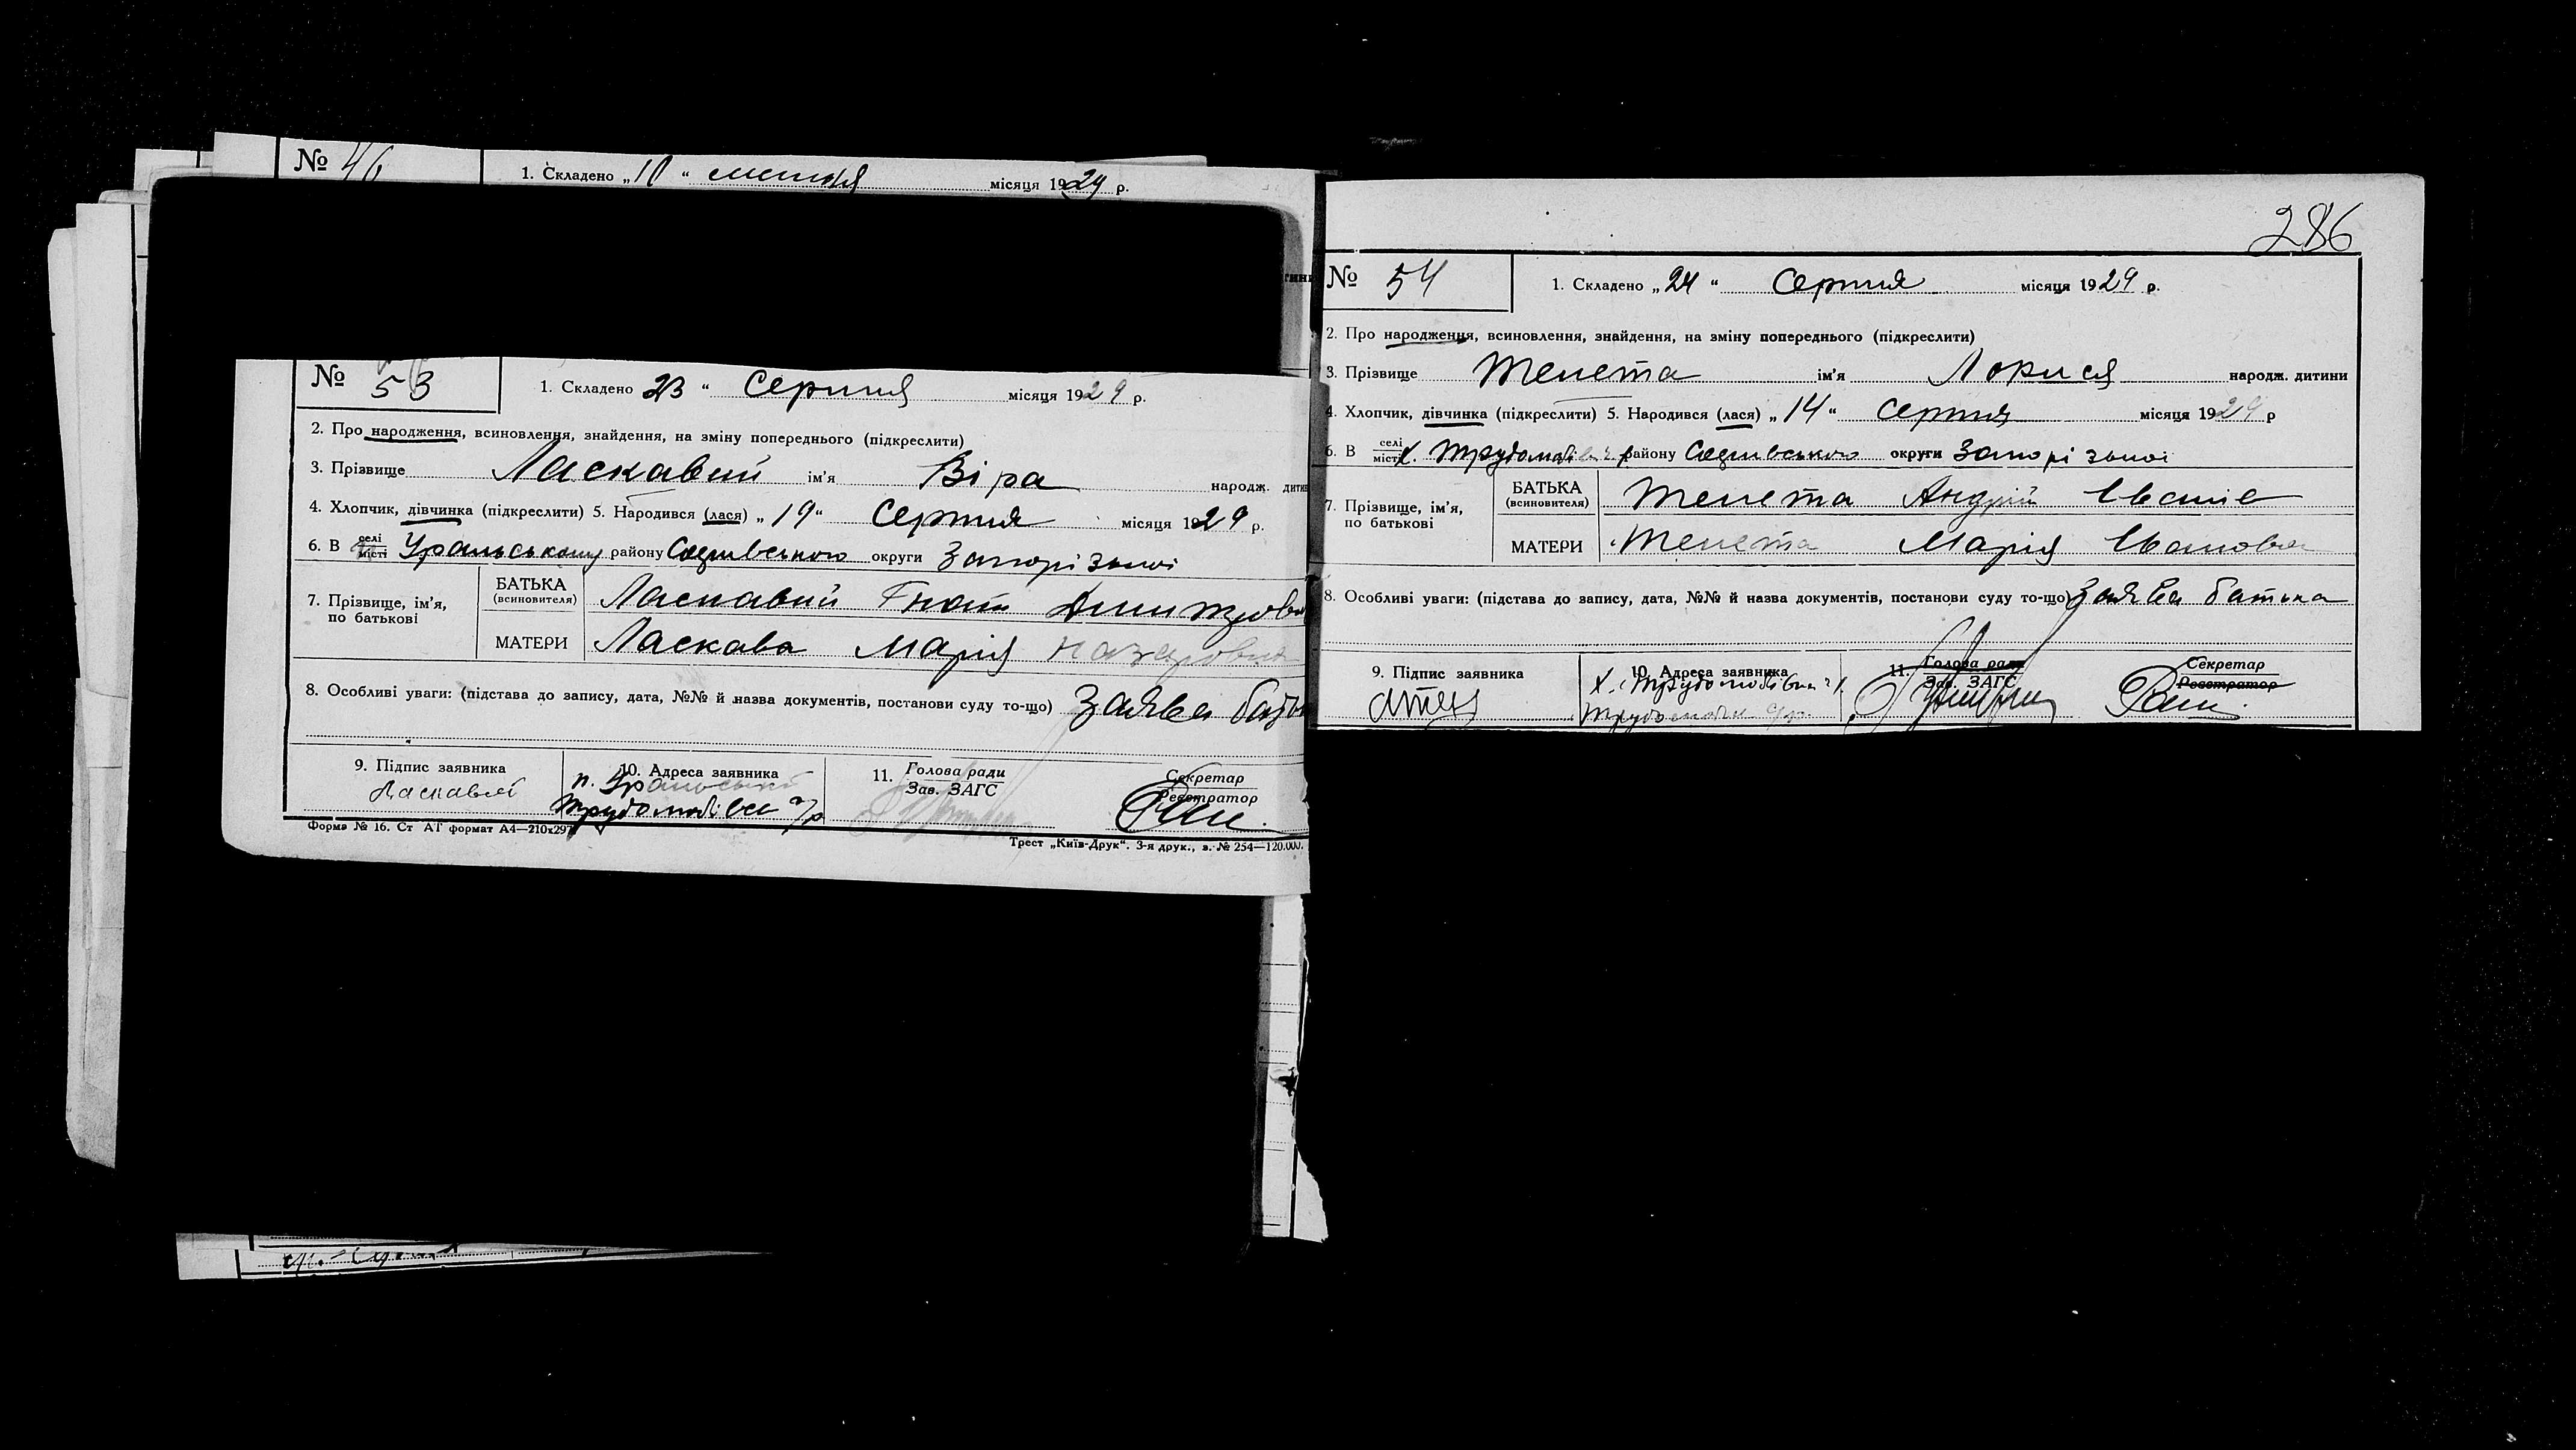 № 46 1. Складено „10“ липня місяця 1929 р.
№ 53 1. Складено 23“ Серпня місяця 1929 р.
2. Про народження, всиновлення, знайдення, на зміну попереднього (підкреслити)
3. Прізвище Ласкавий ім'я Віра народж. дити
4. Хлопчик, дівчинка (підкреслити) 5. Народився (лася) „19“ Серпня місяця 1929 р.
6. В селі місті Уральському району Софиивського округи Запорізької
7. Прізвище, ім'я, по батькові
БАТЬКА (всиновителя) Ласкавий Гнат Дмитров
МАТЕРИ Ласкава Марія Назаровна
8. Особливі уваги: (підстава до запису, дата, №№ й назва документів, постанови суду то-що) заява бать
9. Підпис заявника 10. Адреса заявника 11. Голова ради Зав. ЗАГС Секретар Реєстратор
Ласкавий п. Уральський
Трудолюбівсь с/р
Форма № 16. Ст АГ формат А4—210х297
Трест „Київ-Друк“. 3-я друк., з. № 254—120.000.
286
№ 54 1. Складено „24“ Серпня місяця 1929 р.
2. Про народження, всиновлення, знайдення, на зміну попереднього (підкреслити)
3. Прізвище Тенета ім'я Лорися народж. дитини
4. Хлопчик, дівчинка (підкреслити) 5. Народився (лася) „14“ серпня місяця 1929 р
6. В селі місті х. району Софиивського округи Запорізької
7. Прізвище, ім'я, по батькові
БАТЬКА (всиновителя) Тенета Андрій Іванів
МАТЕРИ Тенета Марія Івановна
8. Особливі уваги: (підстава до запису, дата, №№ й назва документів, постанови суду то-що) Заява батька
9. Підпис заявника 10. Адреса заявника 11. Голова ради Зав. ЗАГС Секретар Реєстратор